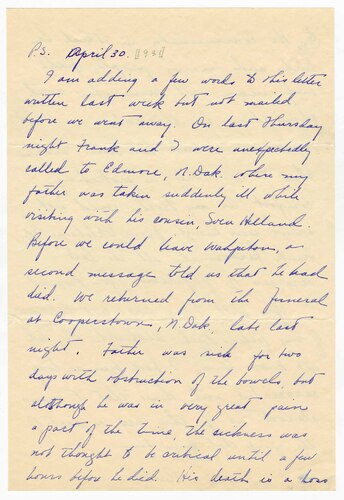 P.S. April 30. [[1941]]
I am adding a few words to this letter
written last week but not mailed
before we went away. On last Thursday
night Frank and I were unexpectedly
called to Edmore, N. Dak. where my
father was taken suddenly ill while
visiting with his cousin, Sven Helland.
Before we could leave Wahpeton, a
second message told us that he had
died. We returned from the funeral
at Cooperstown, N. Dak, late last
night. Father was sick for two
days with obstruction of the bowels, but
although he was in very great pain
a part of the time, the sickness was
not thought to be critical until a few
hours before he died. His death is a loss